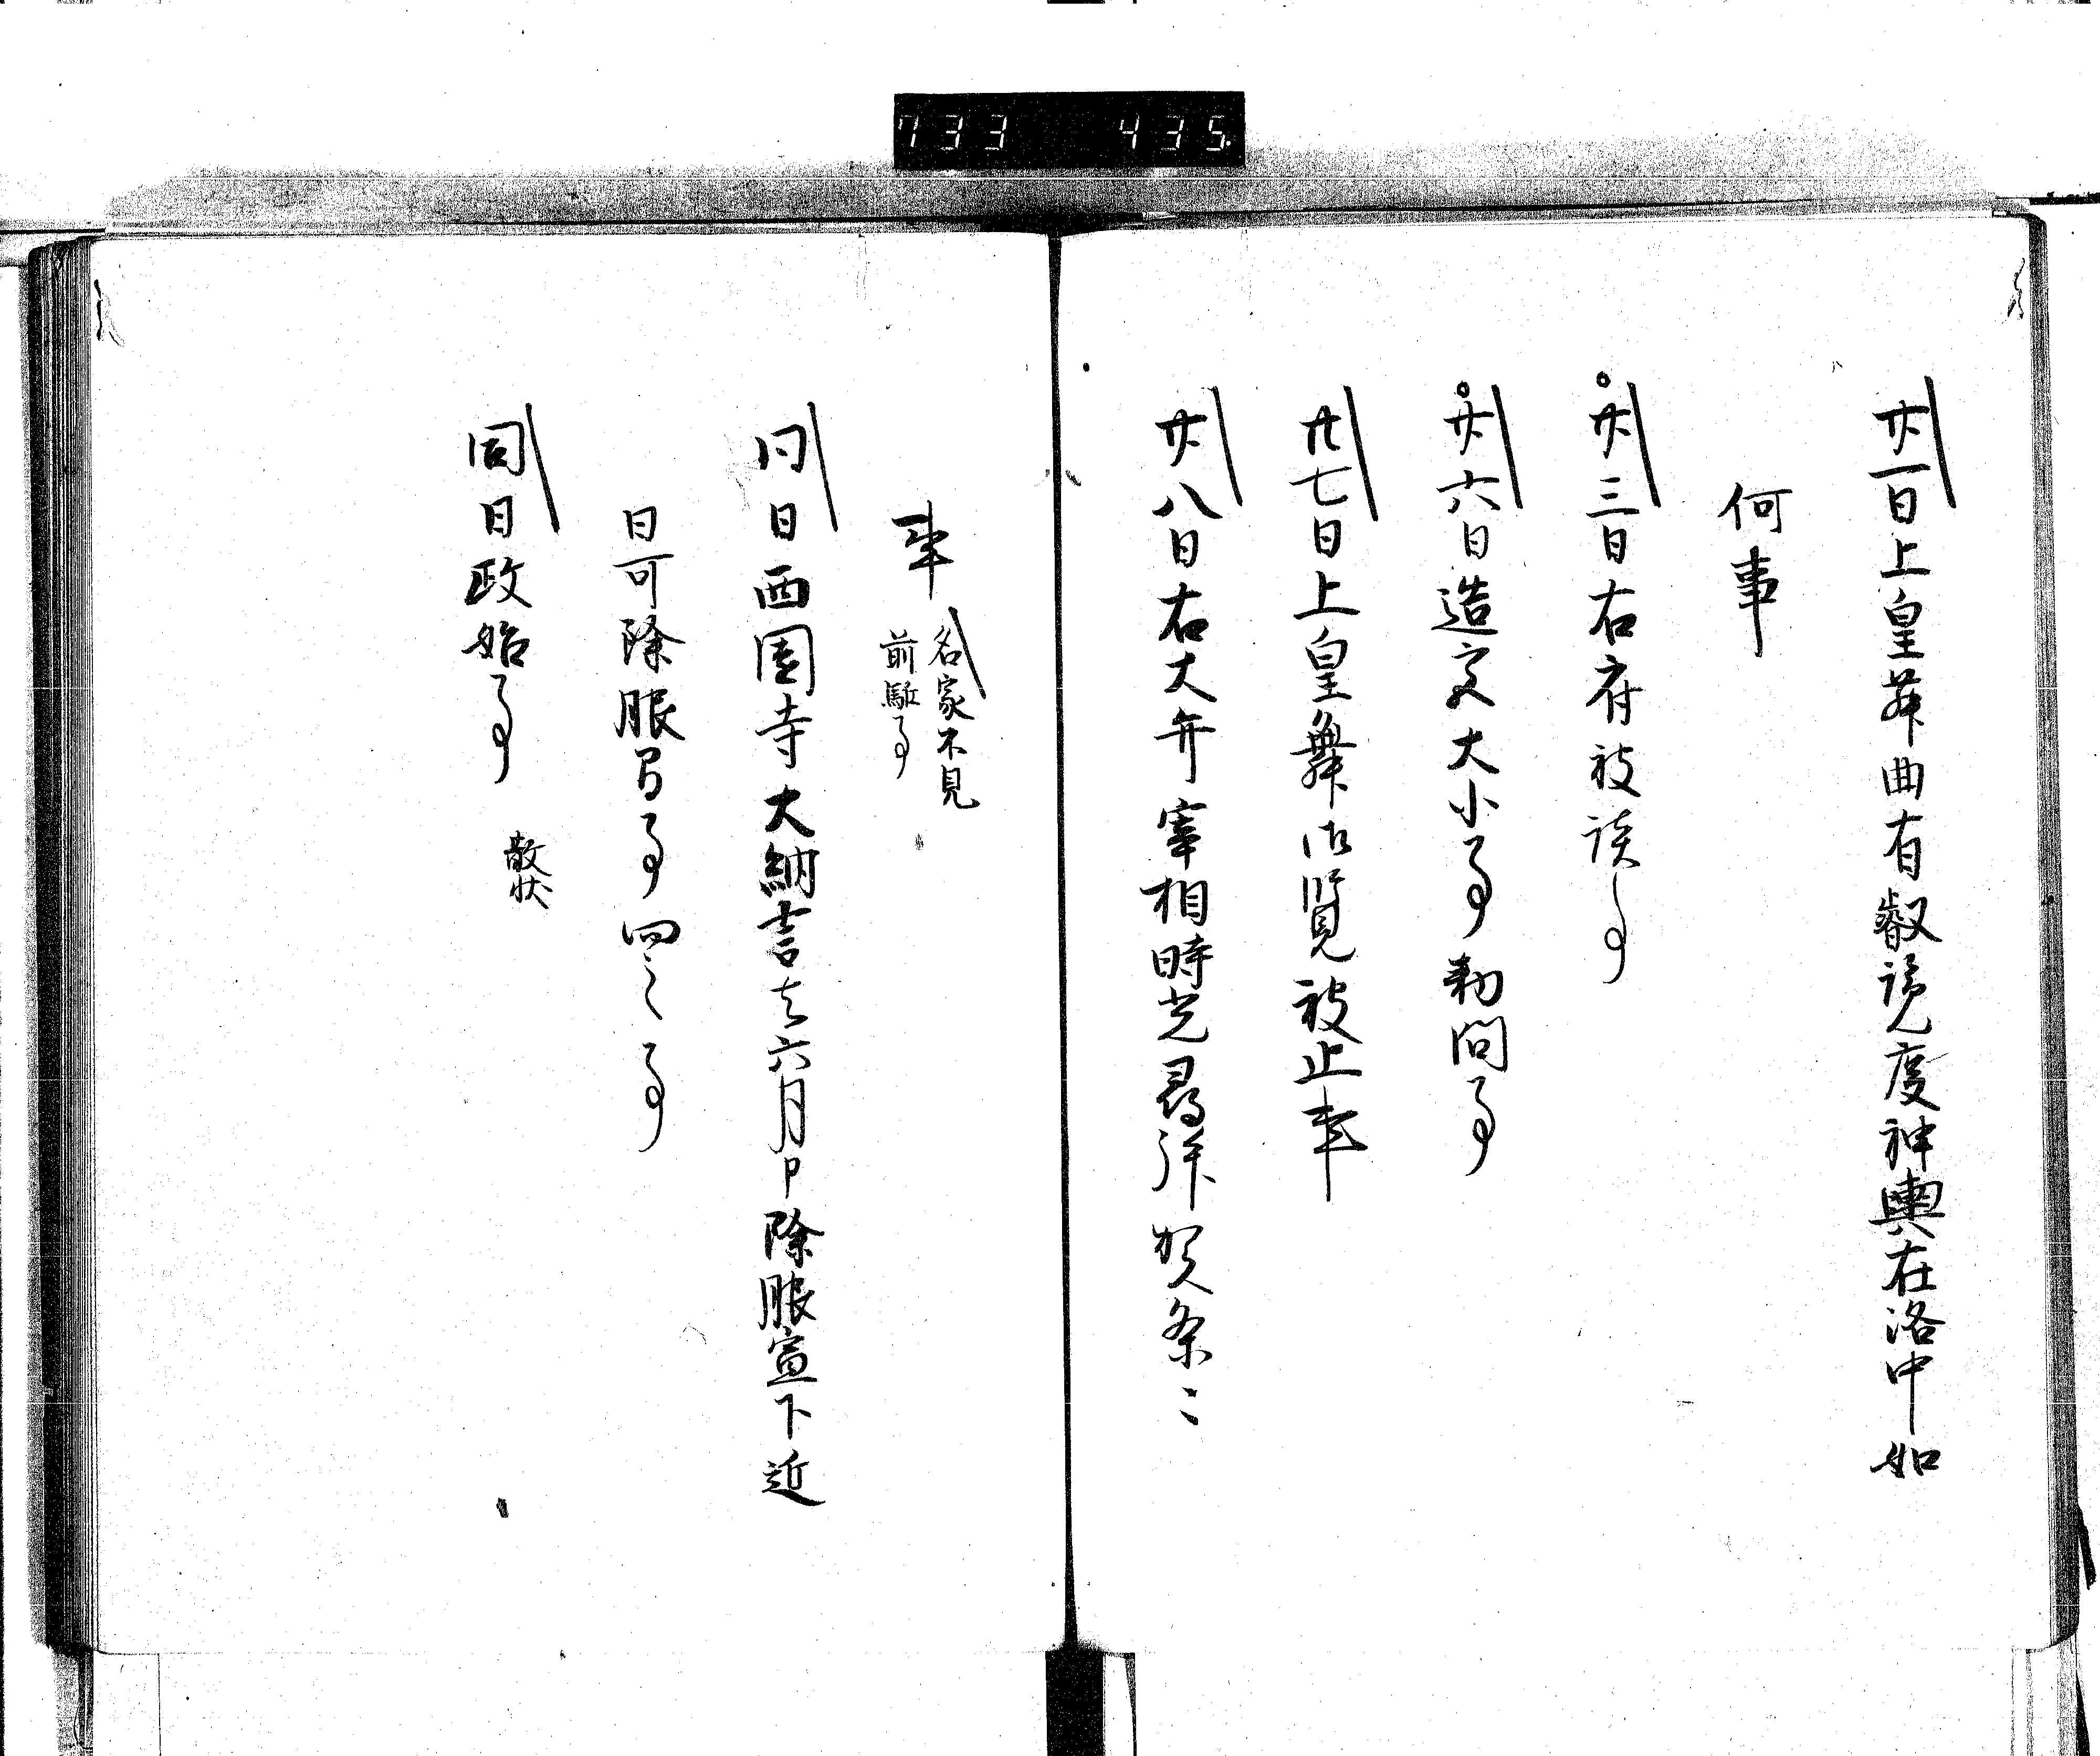 733 435
廿一日上皇舞曲有叡覧度神輿在洛中如
何事
廿三日右府被談事
廿六日造交大小事勅問事
廿七日上皇舞御覧被止事
廿八日右大弁宰相時光尋拝賀条々
事
名家不見
前駈事
同日西園寺大納言去六月中除服宣下近
日可除服哉事 四々事
同日政始事
散状